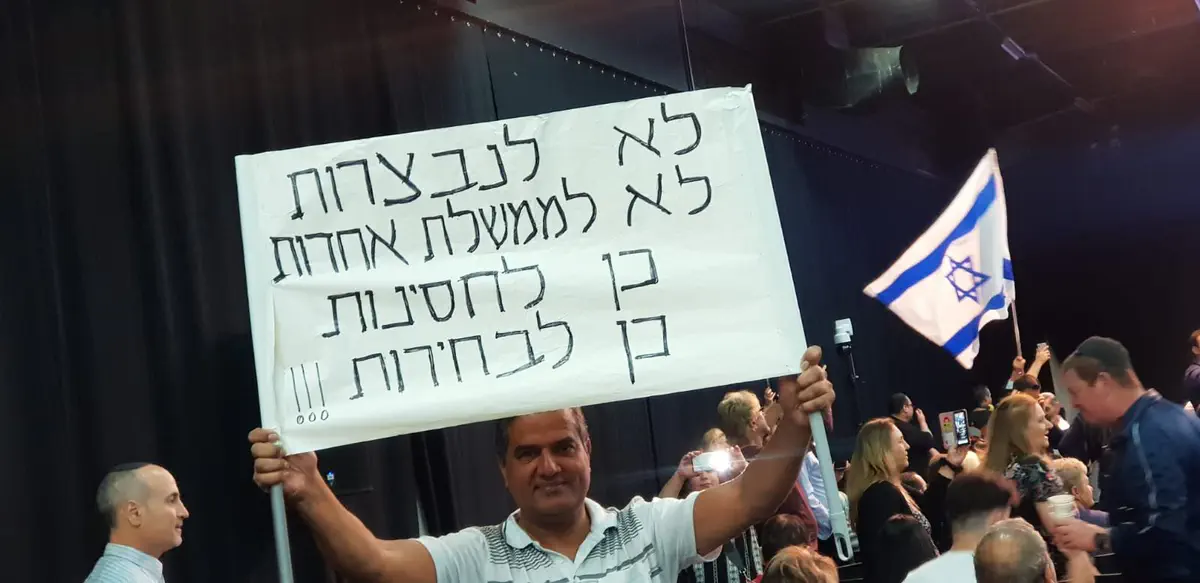 לא לנבצרות
לא לממשלת אחדות
כן לחסינות
כן לבחירות !!!